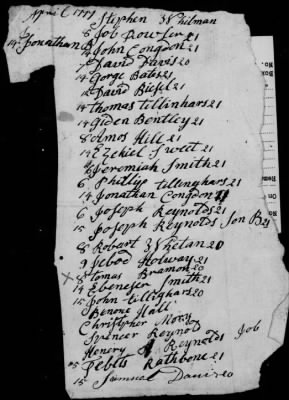 April 1777
6 Stephen
6 Job
14 Jonathan
4 John Congdon 21
7 David Davis 20
14 Gorge Bates 21
David Bissel 21
14 thomas tillinhars 21
14 Giden Bentley 21
8 Amos Hill 21
14 Ezekiel Sweet 21
Jeremiah Smith 21
6 Phillip tillinghars 21
14 Jonathan Congdon 21
6 Joseph Reynolds 21
15 Joseph Reynolds Son B 21
8 Robart 20
9 Holway 21
x 8 tomas Bramon 20
14 Ebeneser Smith 21
15 John tilleghars 20
Benone Hall
Christopher
Spencer Reynol
Henery Reynolds Job
15 Pebles Rathbone 21
15 Samuel Davis 20